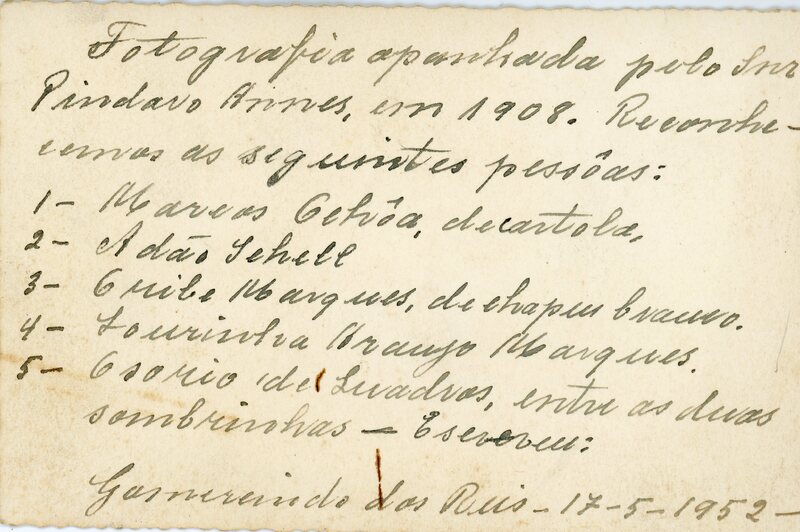 Fotografia apanhada pelo Snr
Pindaro Annes, em 1908. Reconhe-
cemos as seguintes pessôas:
1- Marcos Ochôa, de cartola,
2- Adão Schell
3- Eribe Marques, de chapeu branco.
4- Lourinha Araujo Marques.
5- Osorio de Quadros, entre as duas
sombrinhas - Escreveu:
Gomercindo dos Reis - 17-5-1952-